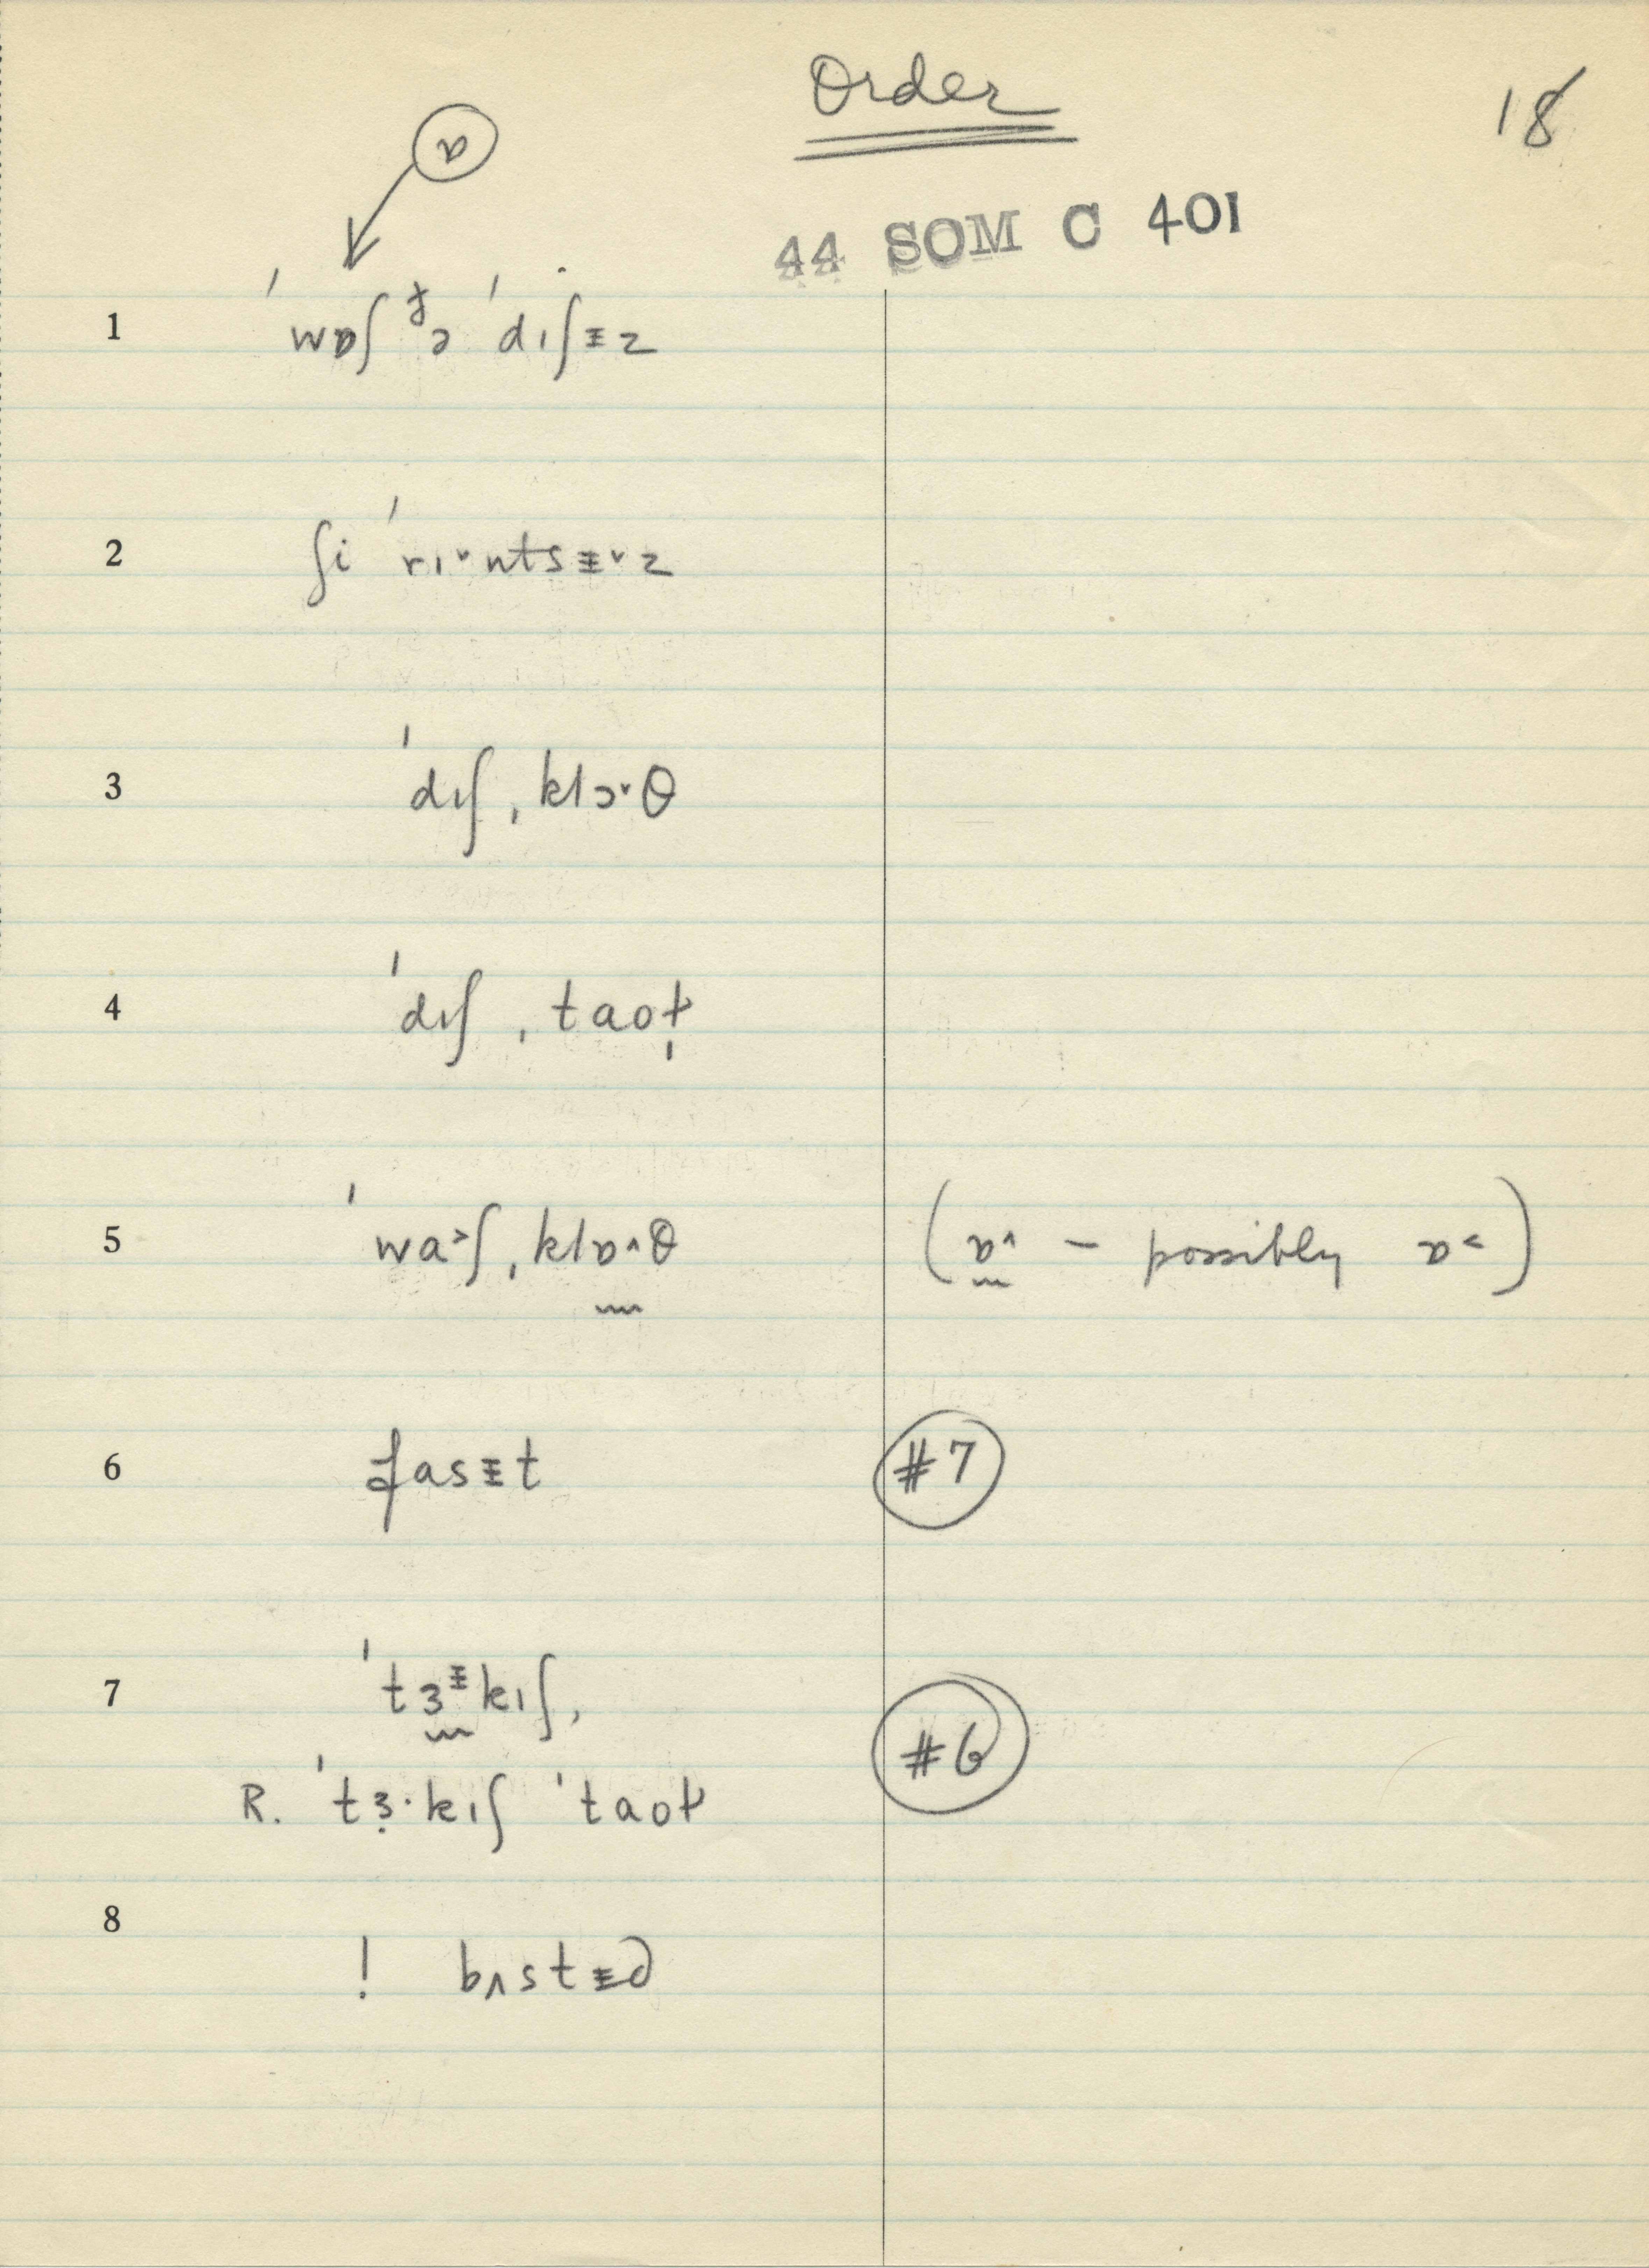 Order
18
ɒ
44 SOM C 401
1 ˈwɒʃ ðə ˈdɪʃɨz
2 ʃi ˈrɪ˅ntsɨ˅z
3 ˈdɪʃˌklɔ˅θ
4 ˈdɪʃˌtaʊɫ̩
5 ˈwa˃ʃˌklɒ˄θ (ɒ˄ – possibly ɒ˂)
6 fasɨt #7
7 ˈtɜᵻkɪʃˌ #6
R. ˈtɜ·kɪʃ ˈtaʊɫ
8 ! bʌstɨd